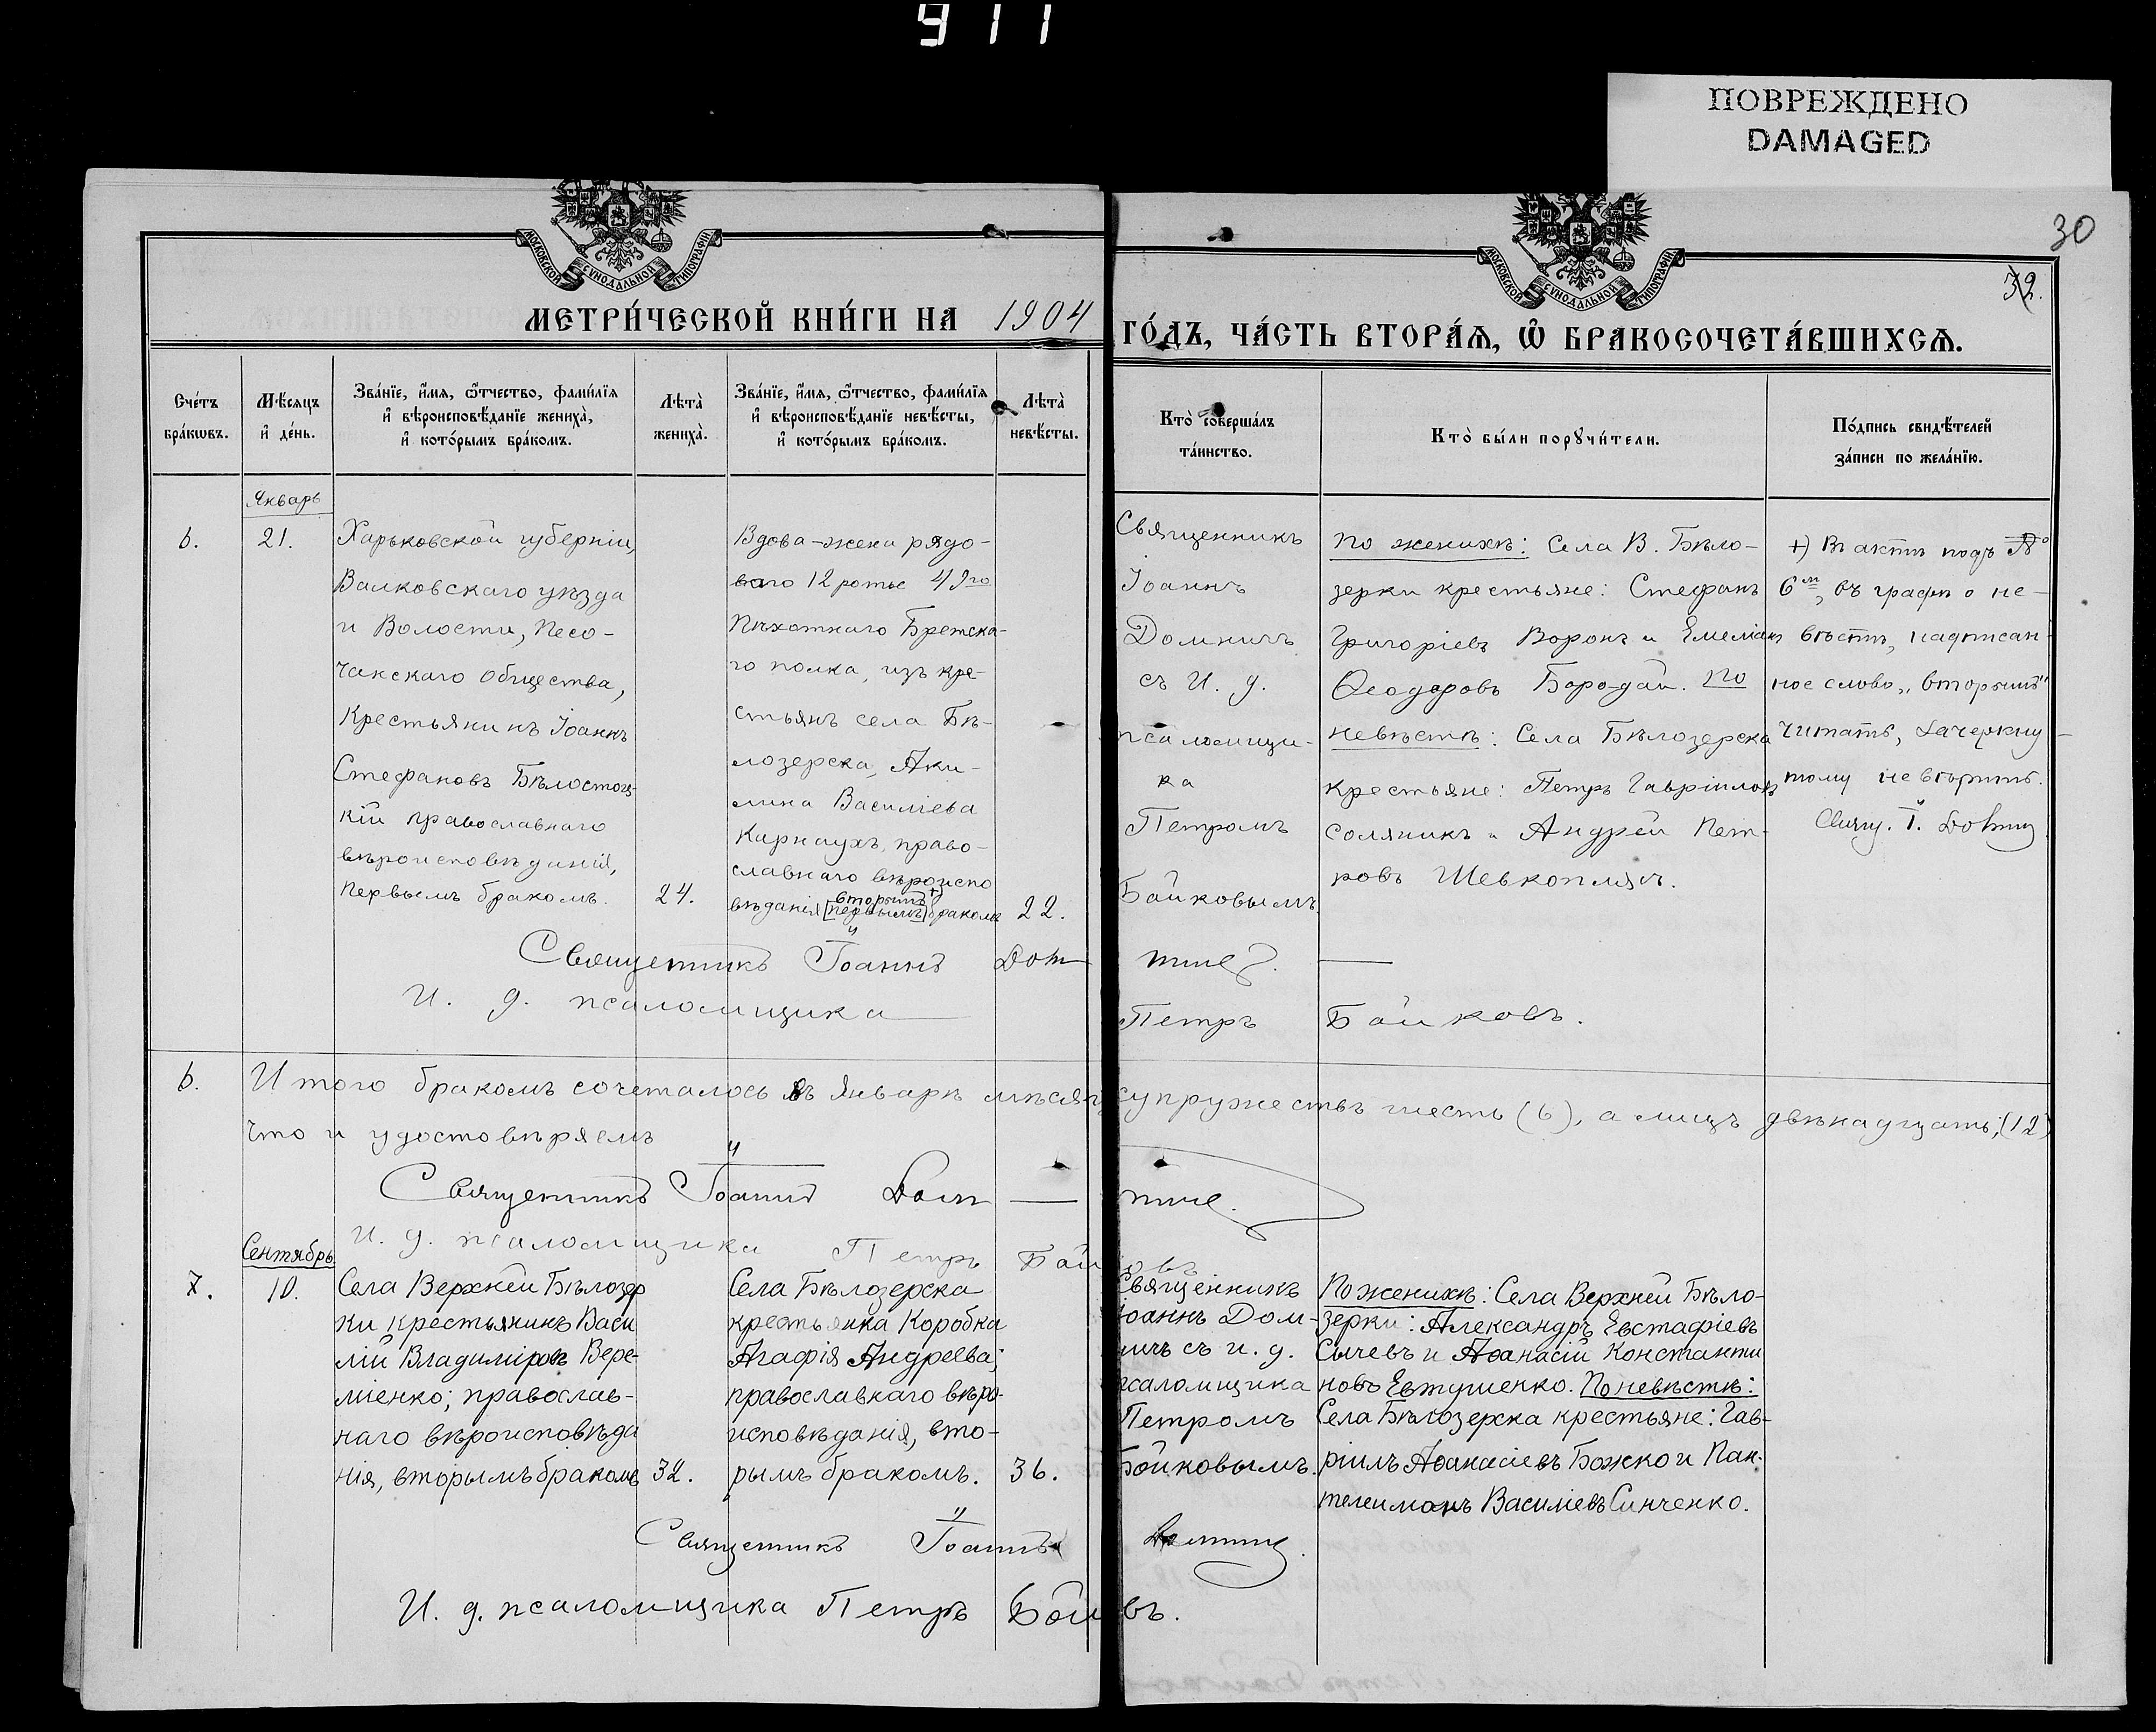 911
ПОВРЕЖДЕНО
DAMAGED
30
32.
МОСКОВСКОЙ СУНОДАЛЬНОЙ ТИПОГРАФІИ
МОСКОВСКОЙ СУНОДАЛЬНОЙ ТИПОГРАФІИ
МЕТРИ́ЧЕСКОЙ КНИ́ГИ НА 1904
ГО́ДЪ, ЧА́СТЬ ВТОРА́Ѧ, Ѽ БРАКОСОЧЕТА́ВШИХСѦ.
Сче́тъ
бра́кѡвъ.
Мѣ́сяцъ
и҆ де́нь.
Зва́нїе, и҆́мя, ѻ҆́тчество, фами́лїя
и҆ вѣроисповѣ́данїе жениха̀,
и҆ кото́рымъ бра́комъ.
Лѣта̀
жениха̀.
Зва́нїе, и҆́мя, ѻ҆́тчество, фами́лїя
и҆ вѣроисповѣ́данїе невѣ́сты,
и҆ кото́рымъ бра́комъ.
Лѣта̀
невѣ́сты.
Кто̀ соверша́лъ
та́инство.
Кто̀ бы́ли порꙋчи́тели.
По́дпись свидѣ́телей
за́писи по жела́нїю.
Январь
6.
21.
Харьковской губерніи,
Валковскаго уѣзда
и Волости, Песо-
чанскаго общества,
Крестьянинъ Іоаннъ
Стефановъ Бѣлостоц-
кій православнаго
вѣроисповѣданія,
первымъ бракомъ.
24.
Вдова-жена рядо-
вого 12 роты 49го
Пѣхотнаго Бретска-
го полка, изъ кре-
стьянъ села Бѣ-
лозерска, Аки-
лина Василіева
Карнаухъ, право-
славнаго вѣроиспо
вторымъ +)
вѣданія [первымъ] бракомъ
22.
Священникъ
Іоаннъ
Домничъ
съ И. д.
псаломщи-
ка
Петромъ
Байковымъ.
По женихѣ: Села В. Бѣло-
зерки крестьяне: Стефанъ
Григоріевъ Воронъ и Емеліанъ
Ѳеодоровъ Бородай. По
невѣстѣ: Села Бѣлозерска
крестьяне: Петръ Гавріиловъ
Соляникъ и Андрей Пет-
ровъ Шевкоплясъ.
+) Въ актѣ подъ №
6м, въ графѣ о не-
вѣстѣ, надписан-
ное слово „вторымъ"
читать, зачеркну-
тому не вѣрить.
Свящ. І. Домнич
Священникъ Іоаннъ Дом
нич.
И. д. псаломщика
Петръ Байковъ.
6. Итого бракомъ сочеталось въ Январѣ мѣсяцѣ супружествъ шесть (6), а лицъ двѣнадцать; (12)
Что и удостовѣряемъ
Священникъ Іоаннъ Дом — нич.
И. д. псаломщика Петръ Бай овъ
Сентябрь
7.
10.
Села Верхней Бѣлозер
ки крестьянинъ Васи
лій Владиміровъ Вере-
міенко; православ-
наго вѣроисповѣда
нія, вторымъ бракомъ
32.
Села Бѣлозерска
крестьянка Коробка
Агафія Андреева;
православнаго вѣро-
исповѣданія, вто-
рымъ бракомъ.
36.
Священникъ
Іоаннъ Дом-
ничъ съ и. д.
псаломщика
Петромъ
Бойковымъ.
По женихѣ: Села Верхней Бѣло-
зерки: Александръ Евстафіевъ
Сычевъ и Аѳанасій Константи
новъ Евтушенко. По невѣстѣ:
Села Бѣлозерска крестьяне: Гав-
ріилъ Аѳанасіевъ Божко и Пан-
телеимонъ Василіевъ Синченко.
Священникъ Іоаннъ Домнич.
И. д. псаломщика Петръ Бой въ.